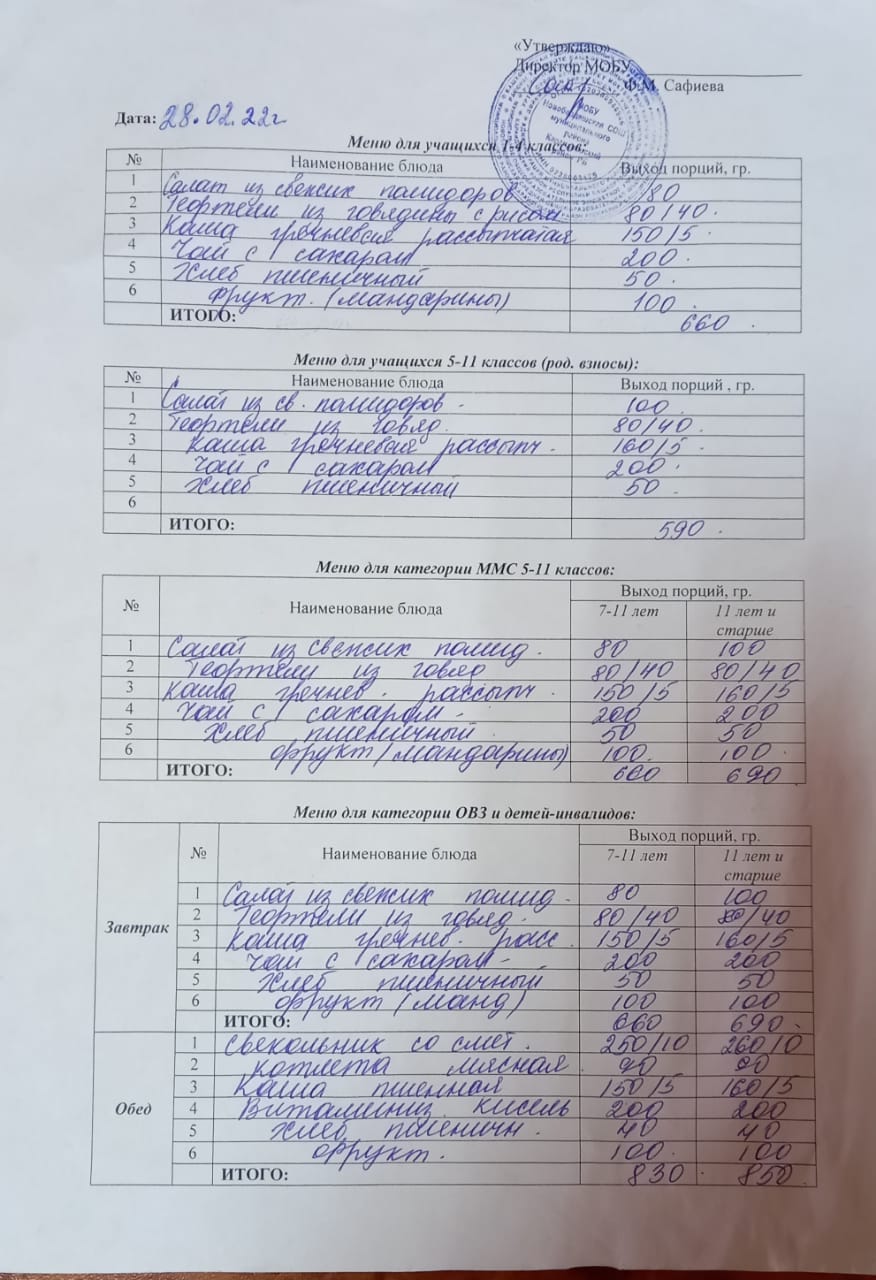 «Утверждаю»
Директор МОБУ
Ф.М. Сафиева
МОБУ
Дата: 28.02.22г
Меню для учащихся 1-4 классов:
№ Наименование блюда Выход порций, гр.
1 Салат из свежих помидоров 80
2 Тефтели из говядины с рисом 80/40.
3 Каша гречневая рассыпчатая 150/5.
4 Чай с сахаром 200.
5 Хлеб пшеничный 50.
6 Фрукт. (мандарины) 100.
ИТОГО: 660.
Меню для учащихся 5-11 классов (род. взносы):
№ Наименование блюда Выход порций , гр.
1 Салат из св. помидоров - 100.
2 Тефтели из говяд. 80/40.
3 Каша гречневая рассыпч. 160/5.
4 Чай с сахаром 200.
5 Хлеб пшеничный 50.
6
ИТОГО: 590.
Меню для категории ММС 5-11 классов:
№ Наименование блюда Выход порций, гр.
7-11 лет 11 лет и
старше
1 Салат из свежих помид. 80 100
2 Тефтели из говяд 80/40 80/40
3 Каша гречнев. рассыпч. 150/5 160/5
4 Чай с сахаром - 200 200
5 Хлеб пшеничный. 50 50
6 фрукт (мандарины) 100. 100.
ИТОГО: 660 690
Меню для категории ОВЗ и детей-инвалидов:
№ Наименование блюда Выход порций, гр.
7-11 лет 11 лет и
старше
Завтрак
1 Салат из свежих помид. 80 100
2 Тефтели из говяд. 80/40 80/40
3 Каша гречнев. расс. 150/5 160/5
4 Чай с сахаром - 200 200
5 Хлеб пшеничный 50 50
6 фрукт (манд) 100 100
ИТОГО: 660 690.
Обед
1 Свекольник со смет. 250/10 260/10
2 котлета мясная 90 90
3 Каша пшенная 150/5 160/5
4 Витаминиз. кисель 200 200
5 Хлеб пшеничн. 40 40
6 фрукт. 100. 100
ИТОГО: 830. 850.